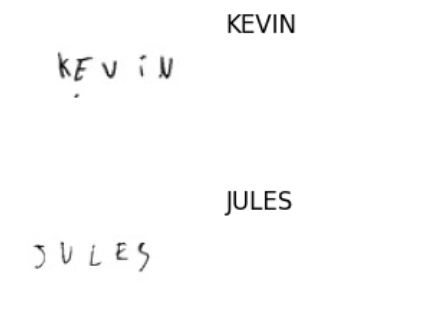 KEVIN
KEViN
JULES
JULES